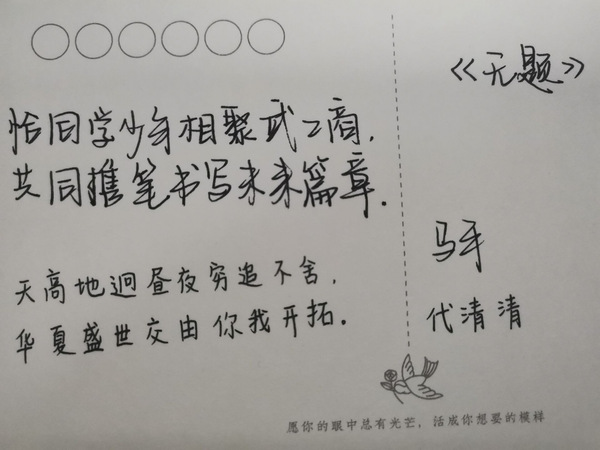 《无题》
恰同学少年相聚武工商，
共同携笔书写未来篇章.
天高地迥昼夜穷追不舍，
华夏盛世交由你我开拓。
代清清
愿你的眼中总有光芒，活成你想要的模样